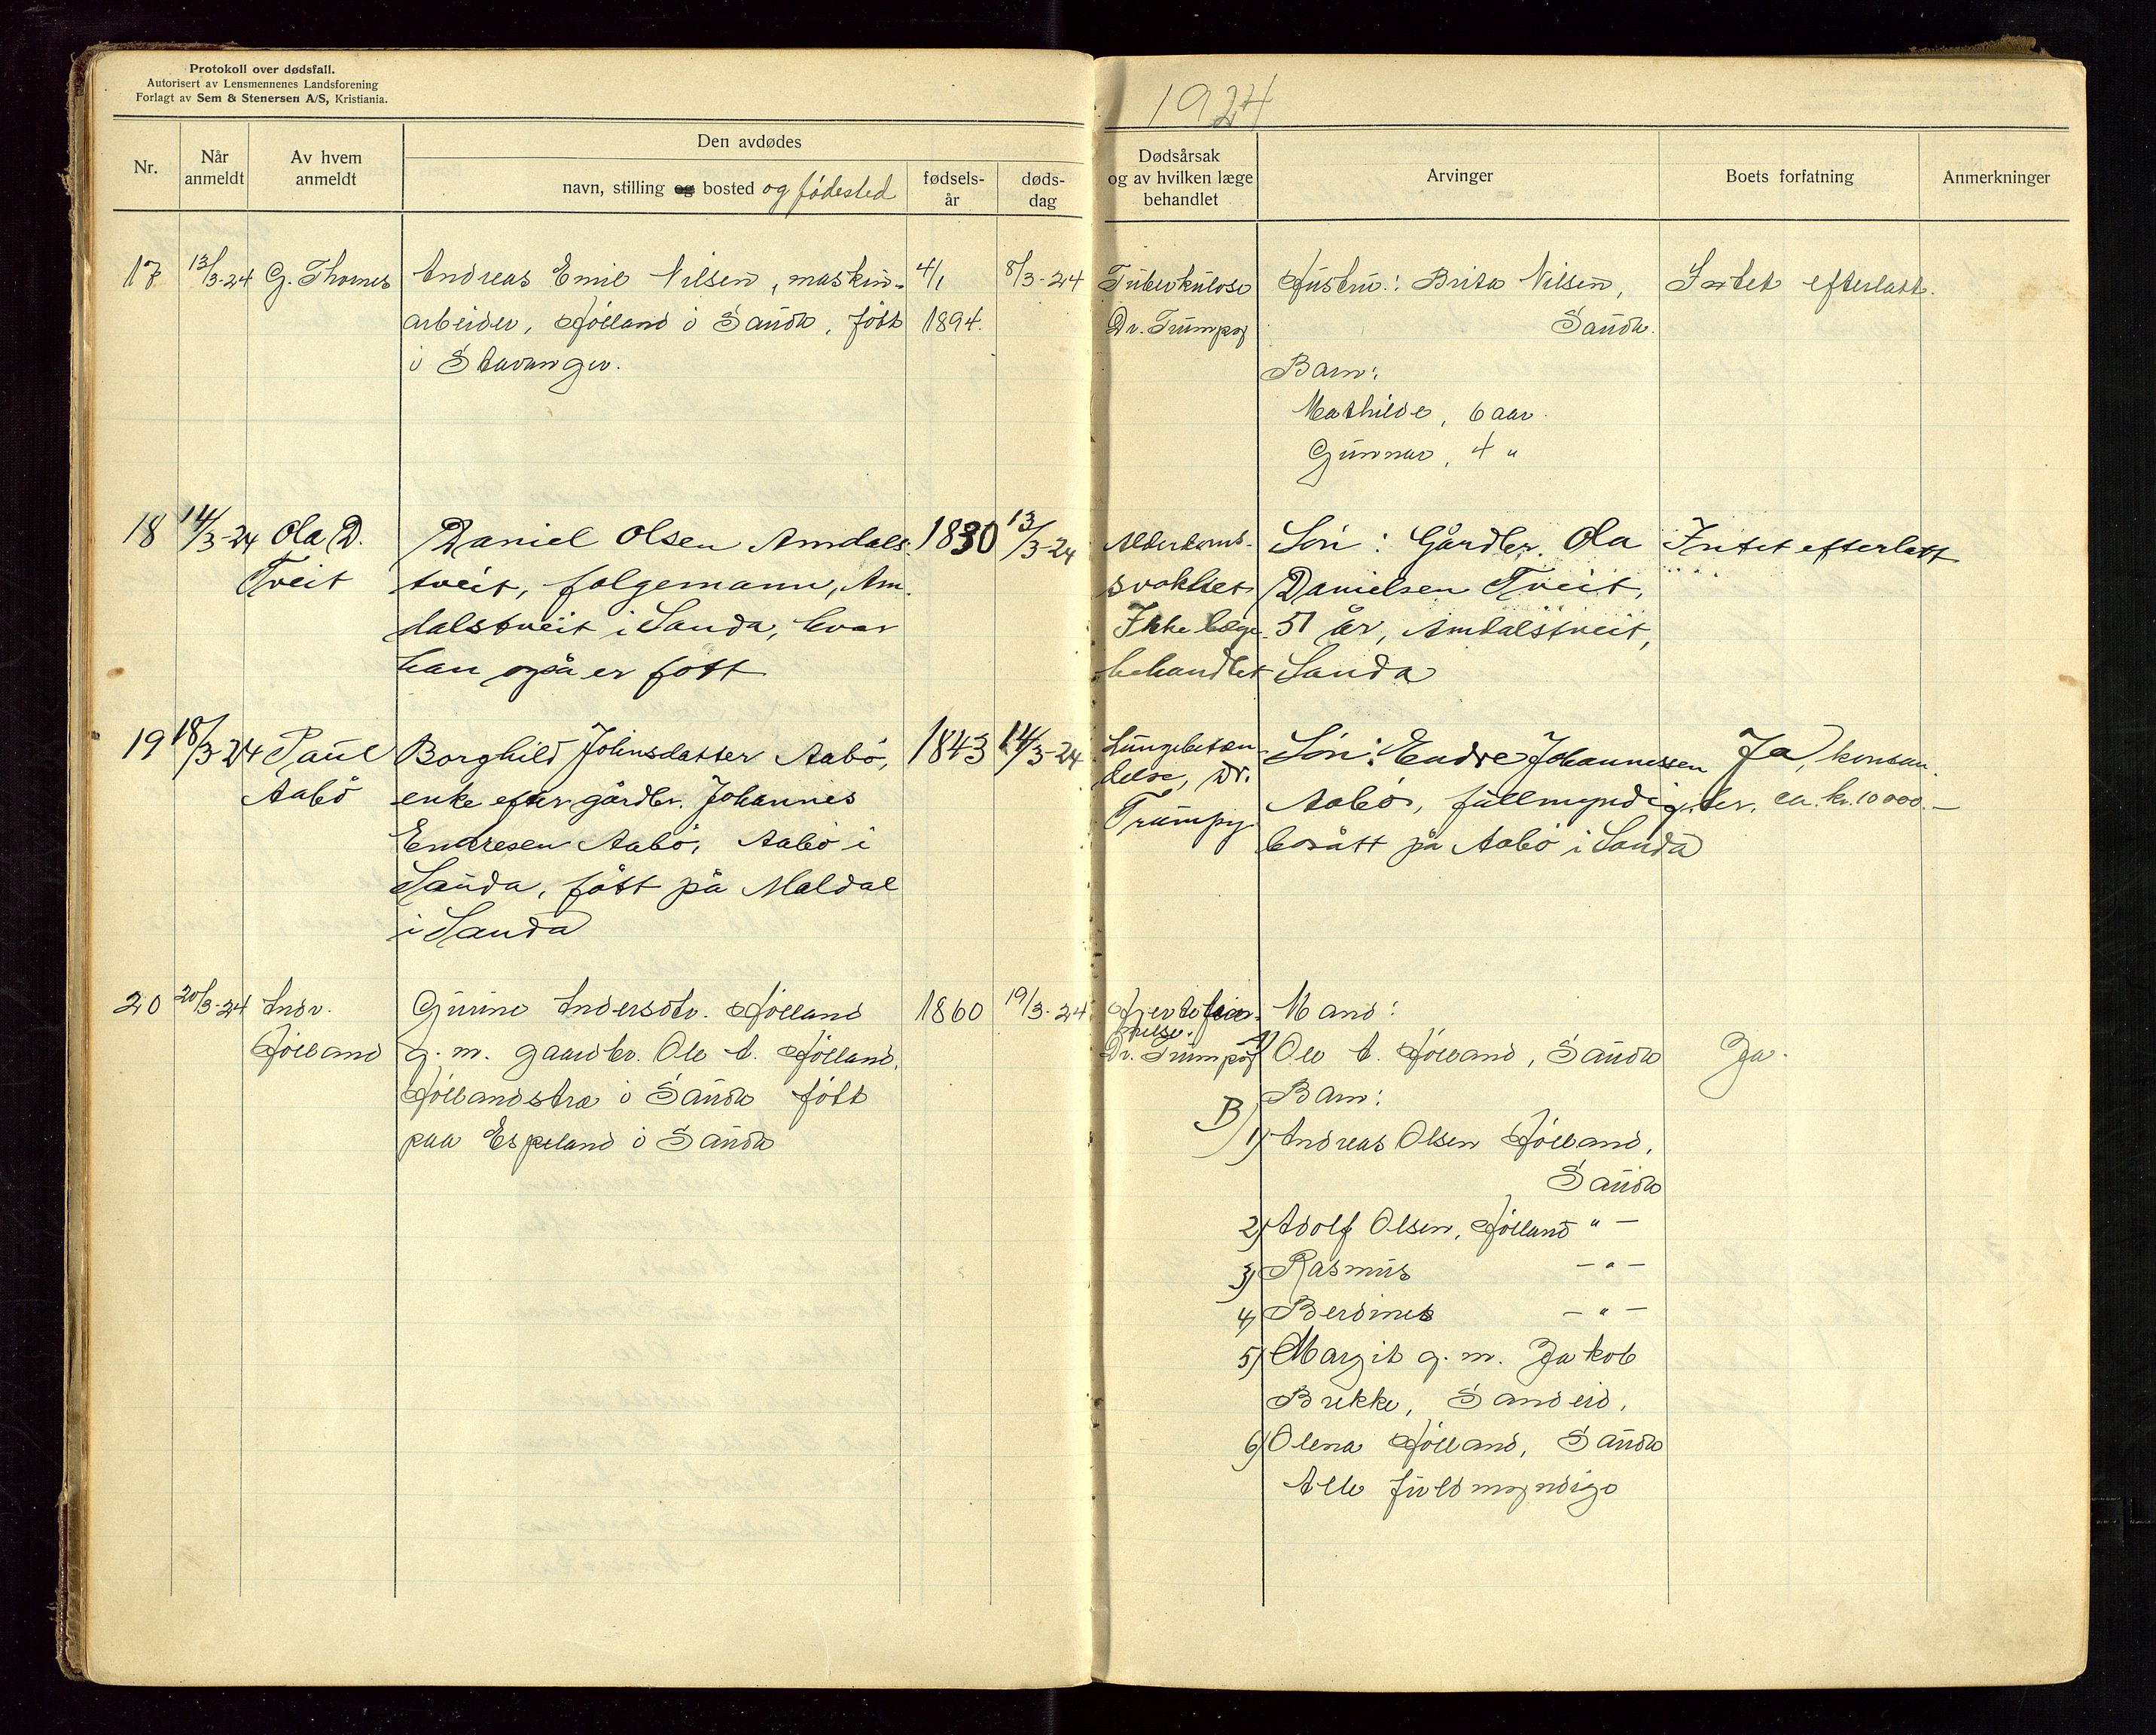 Protokoll over dødsfall.
Autorisert av Lensmennenes Landsforening
Forlagt av Sem & Stenersen A/S, Kristiania.
1924
Nr.
Når anmeldt
Av hvem anmeldt
Den avdødes
navn, stilling og bosted og fødested
fødsels-år
døds-dag
Dødsårsak
og av hvilken læge
behandlet
Arvinger
Boets forfatning
Anmerkninger
17 13/3-24 G. Thomes
Andreas Emil Nilsen, maskin-
arbeider, Hølland i Sauda, født
i Stavanger.
4/1
1894.
8/3-24
Tuberkulose
Dr. Trumpy
Hustru: Brita Nilsen,
Sauda.
Barn:
Mathilde, 6 aar.
Gunnar, 4 "
Intet efterlatt.
18 14/3-24 Ola D.
Tveit
Daniel Olsen Amdals-
tveit, folgemann, Am-
dalstveit i Sauda, hvor
han også er fott
1830
13/3-24
Alderdoms-
svakhet
Ikke læge-
behandlet
Søn: Gårdbr. Ola
Danielsen Tveit,
51 år, Amdalstveit,
Sauda
Intet efterlatt
19 18/3-24 Paul
Aabø
Borghild Johnsdatter Aabø,
enke efter gårdbr. Johannes
Endresen Aabø, Aabø i
Sauda, fött på Maldal
i Sauda
1843
14/3-24
Lungebeten-
delse, Dr.
Trumpy
Søn: Endre Johannessen
Aabø, fullmyndig,
bosatt på Aabø i Sauda
Ja, konsan.
ca. kr. 10 000.—
20 20/3-24 Andr.
Hølland
Gurine Andersdtr. Hølland
g. m. gaardbr. Ole A. Hølland,
Høllandstræ i Sauda født
paa Espeland i Sauda
1860
19/3-24
Dr. Trumpy
Mand:
A) Ole A. Hølland, Sauda
Ja.
B) Barn:
1) Andreas Olsen Hølland,
Sauda
2) Adolf Olsen, Hølland " —
3) Rasmus — " —
4) Berdines — " —
5) Margit g. m. Jakob
Brekke, Sandeid,
6) Olena Hølland, Sauda
Alle fuldmyndige